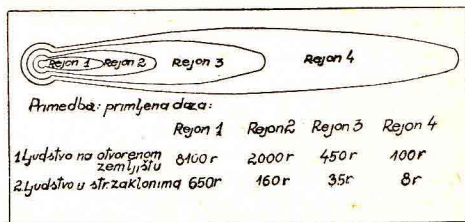 Rejon 1 Rejon 2 Rejon 3 Rejon 4
Primedba: primljena doza:
Rejon 1 Rejon2 Rejon 3 Rejon 4
1.Ljudstvo na otvorenom
zemljištu 8100r 2000r 450r 100r
2.Ljudstvo u str.zaklonima 650r 160r 35r 8r